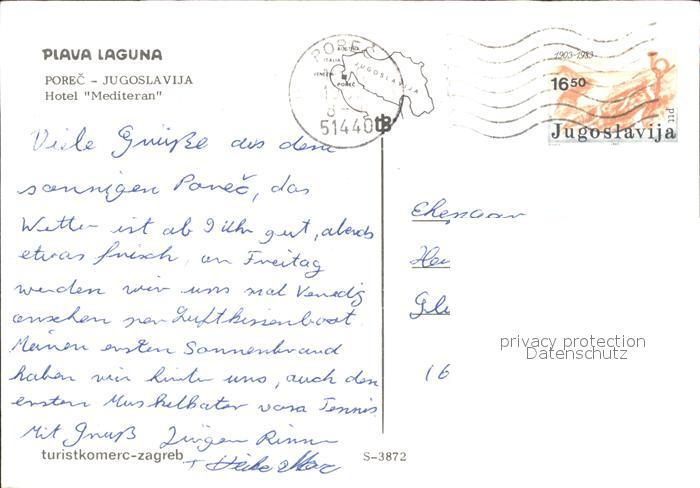 PLAVA LAGUNA
POREČ – JUGOSLAVIJA
Hotel "Mediteran"
POREČ
AUSTRIA
ITALIA
VENEZIA
POREČ
JUGOSLAVIJA
51440
1903-1983
16 50
Jugoslavija
ptt
Viele Grüße aus dem
sonnigen Poreč, das
Wetter ist ab 9 Uhr gut, abends
etwas frisch, am Freitag
werden wir uns mal Venedig
ansehen per Luftkissenboot.
Meinen ersten Sonnenbrand
haben wir hinter uns, auch den
ersten Muskelkater vom Tennis.
Mit Gruß Jürgen
+
Ehepaar
16
privacy protection
Datenschutz
turistkomerc-zagreb
S-3872